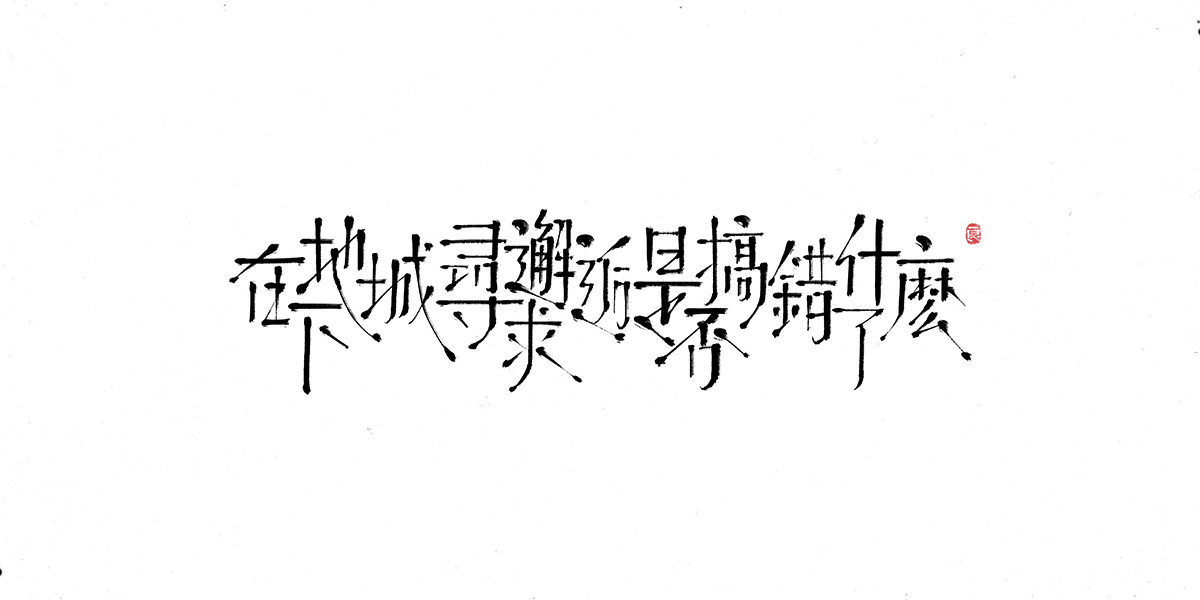 在地下城尋求邂逅是否搞錯了什麼